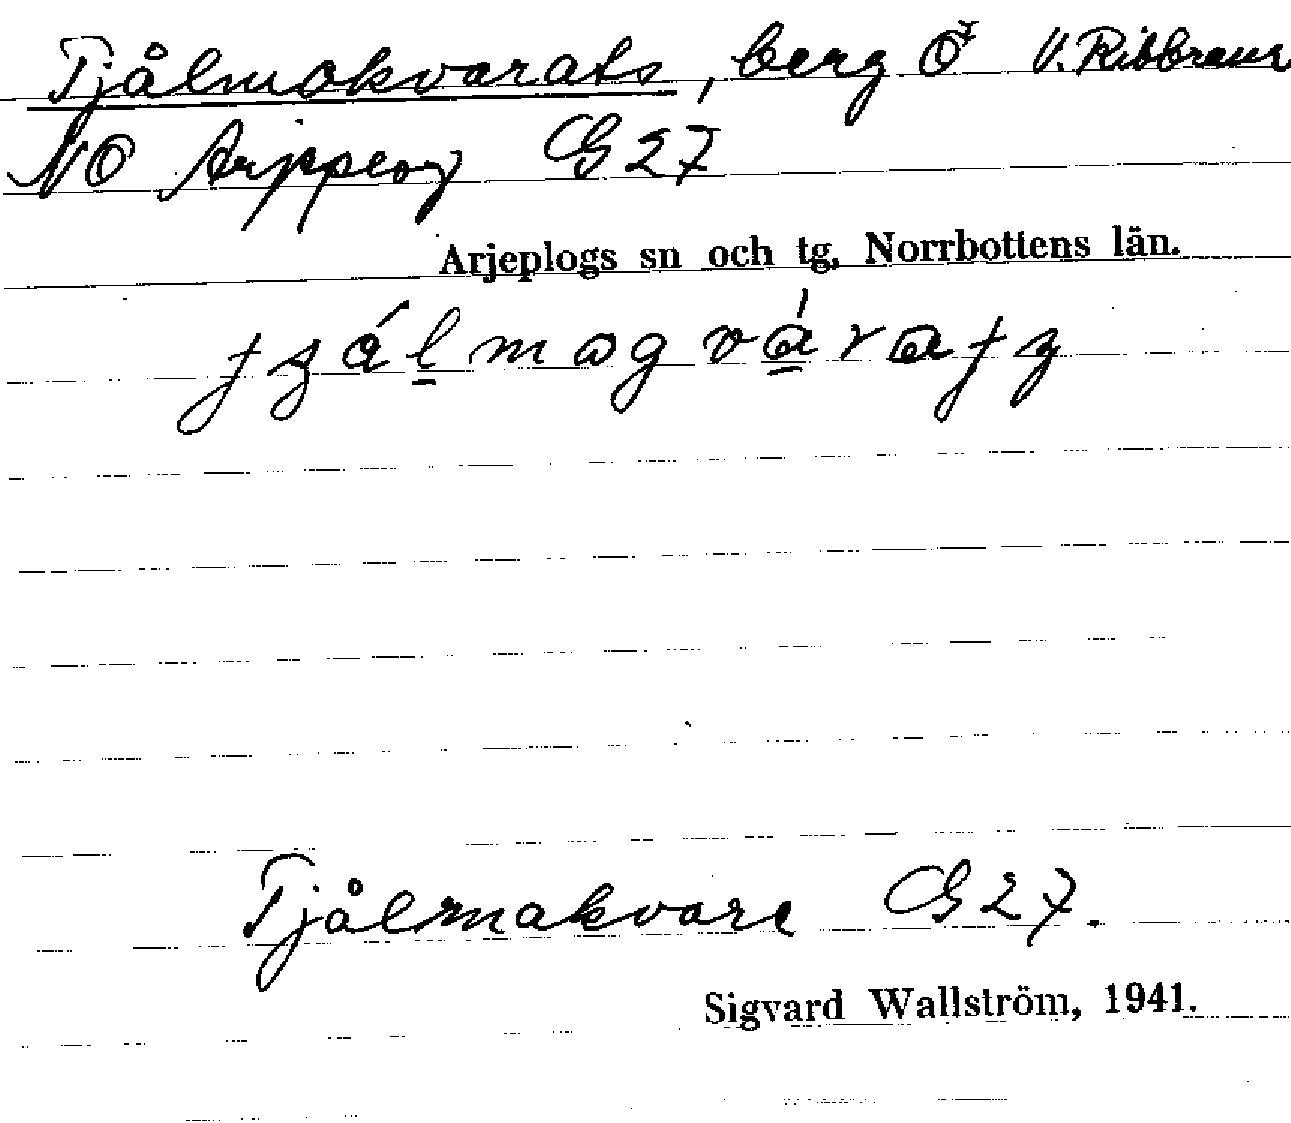 Tjålmokvarats, berg Ö V. Ribbraur
NO Arjeplog G 27
Arjeplogs sn och tg, Norrbottens län.
Tjålmakvare G 27.
Sigvard Wallström, 1941.